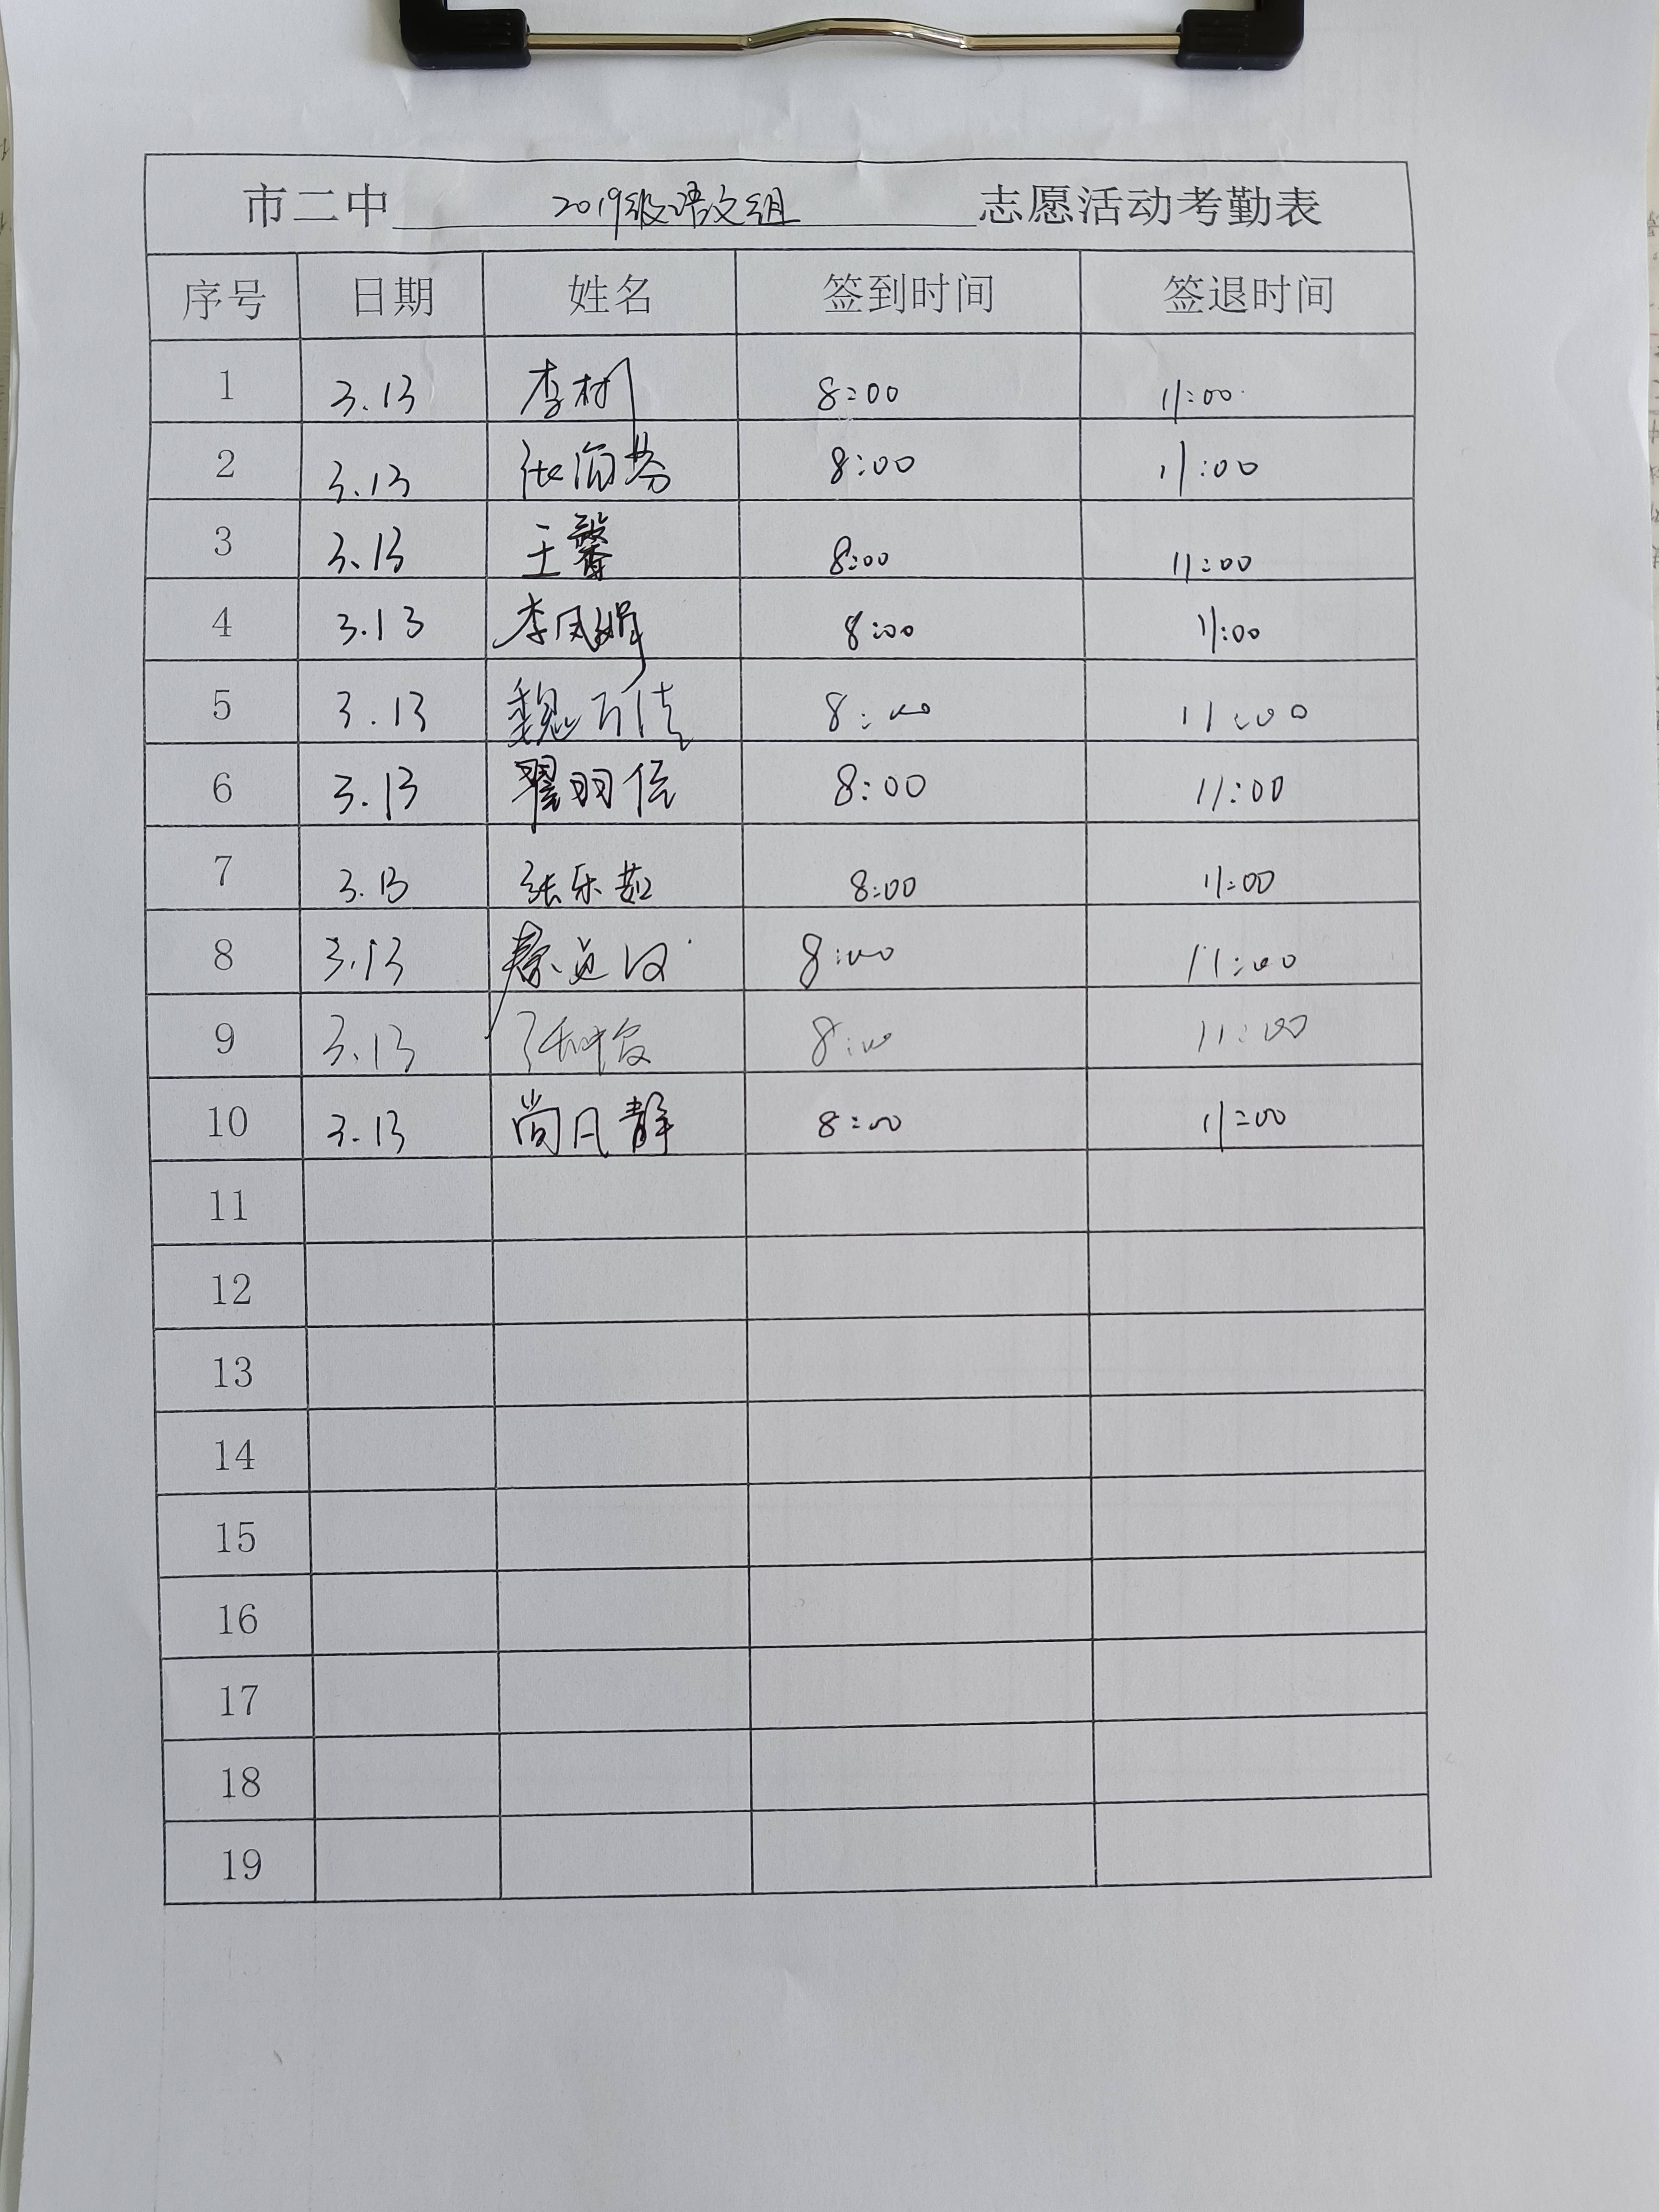 市二中 2019级语文组 志愿活动考勤表
序号 日期 姓名 签到时间 签退时间
1 3.13 李树 8:00 11:00
2 3.13 张海芬 8:00 11:00
3 3.13 王馨 8:00 11:00
4 3.13 李凤娟 8:00 11:00
5 3.13 魏 8:00 11:00
6 3.13 翟羽佳 8:00 11:00
7 3.13 张乐茹 8:00 11:00
8 3.13 8:00 11:00
9 3.13 8:00 11:00
10 3.13 尚凡静 8:00 11:00
11
12
13
14
15
16
17
18
19